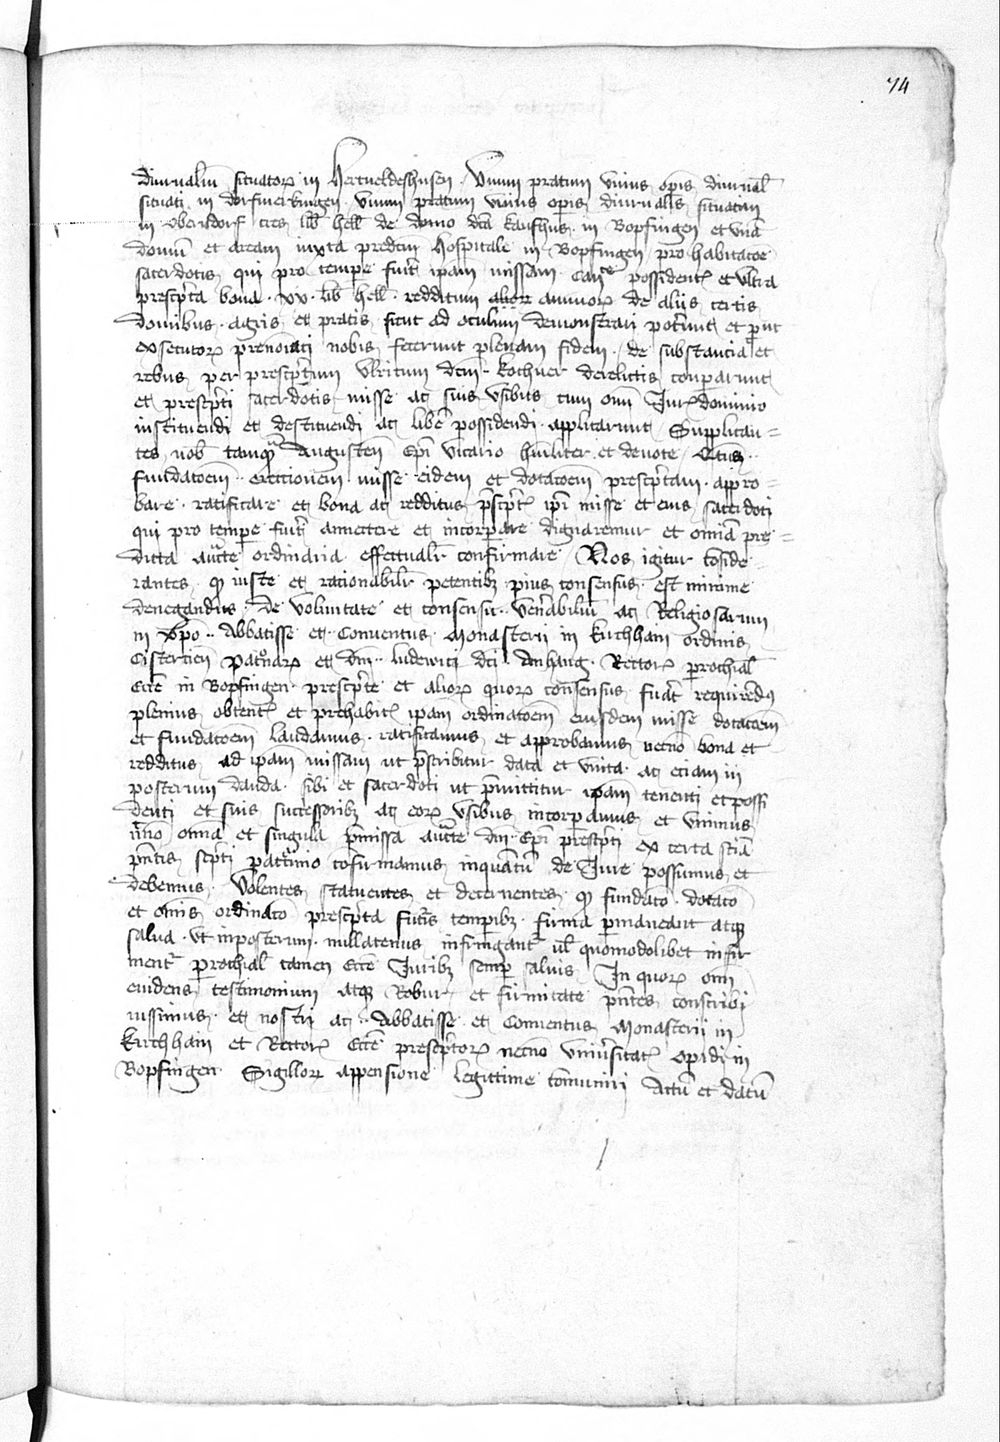 74
diurnaliũ situatoꝝ in Hertueldeshusen. Vnum pratum vnius opis diurnal̃
situati in dorfmerkingen. vnum pratum vnius opis diurnalis situatum
in Oberndorf tres lib̃ hell̃ de domo dc̃a kaufhus in Bopfingen et vnã
domũ et aream iuxta predcm̃ hospitale in Bopfingen pro habitacõe
sacerdotis qui pro tempe fuit̃ ipam missam possident̃ et vltra
prescpta bona. xv. lib̃ hell̃. reddituum annuoꝝ de aliis certis
domibus. agris et pratis sicut ad oculum demonstrari pot̃unt et put
exsecutoꝝ prenoĩati nobis fecerunt plenam fidem. de substancia et
rebus per prescptum Vlricum dcm̃ kochner derelictis conparunt
et prescpti sacerdotis misse ac suis vsibus cum omĩ Iur̃ dominio
instituendi et destituendi ac libe possidendi. applicarunt Supplican=
tes nob̃ tamq̃ Augusteñ Epĩ vicario hũiliter et deuote
fundacõem. erectionem misse eidem et dotacõem prescptam. appro=
bare. ratificare et bona ac redditus pscpt̃ ipĩ misse et eius sacerdoti
qui pro tempe fuit̃ annectere et incorpare dignaremur et omĩa pre=
dicta auc̃te ordinaria effectualr̃ confirmare Nos igitur conside=
rantes ꝙ iuste et rationabilr̃ petentibꝫ pius consensus est minime
denegandus de voluntate et consensu. venẽabiliũ ac Religiosarum
in xp̃o.. Abbatisse et Conuentus Monasterii in Kirchhain ordinis
Cistercieñ pat̃naꝝ et dñi. ludewici dc̃i Anhang. Rectorꝫ parochial̃
Ecc̃e in Bopfingen. prescpte et alioꝝ quoꝝ consensus fuat̃ requirẽdꝰ
plenius obtent̃ et prehabit̃ ipam ordinacõem eiusdem misse dotacõem
et fundacõem laudamus. ratificamus et approbamus necnõ bona et
redditus ad ipam missam ut pscribitur data et vnita. ac eciam in
posterum danda. sibi et sacerdoti ut pmittitur ipam tenenti et possi
denti et suis successoribꝫ ac eoꝝ vsibus incorpamus et vnimus
omĩa et singula pmissa auc̃te dñi Epĩ prescpti ex certa sciã
pñtis scpti patrocĩo cõfirmamus inquãtũ de Iure possumus et
debemus. Volentes statuentes et decernentes ꝙ fundacõ. dotacõ
et omis ordinacõ prescpta futis tempibꝫ. firma pmaneant atqꝫ
salua. Vt inposterum. nullatenus infringant̃ ul̃ quomodolibet infir
ment̃ parochial̃ tamen Ecc̃e Iuribꝫ semp saluis. In quoꝝ omĩ
euidens testimonium atqꝫ Robur et firmitate pñtes conscribi
iussimus. et nostri ac.. Abbatisse et Conuentus Monasterii in
Kirchhain et Rectorꝫ Ecc̃e prescptoꝝ necnõ vniuersitat̃ opidi in
Bopfingen Sigilloꝝ appensione legittime cõmuniri Actũ et datũ